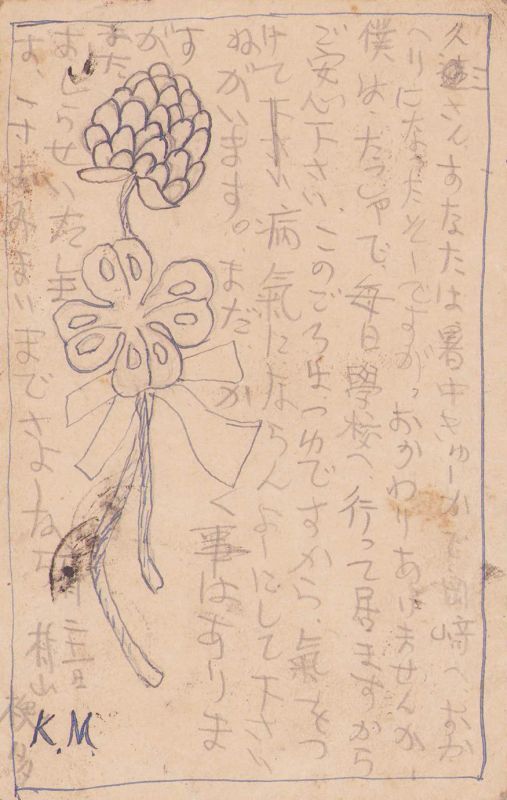 さん あなたは暑中きゅーかで岡崎へ おか
へりになたそーですが、おかわりありませんか
僕は、たっしゃで、毎日學校へ、行って居ますから
ご安心下さい、このごろはつゆですから、氣をつ
けて下さい病氣にならんよーにして下さい
ねがいます。まだかく事はありま
すが
また しらせいたしま
す、 おみまいまでさよーなら
K.M.